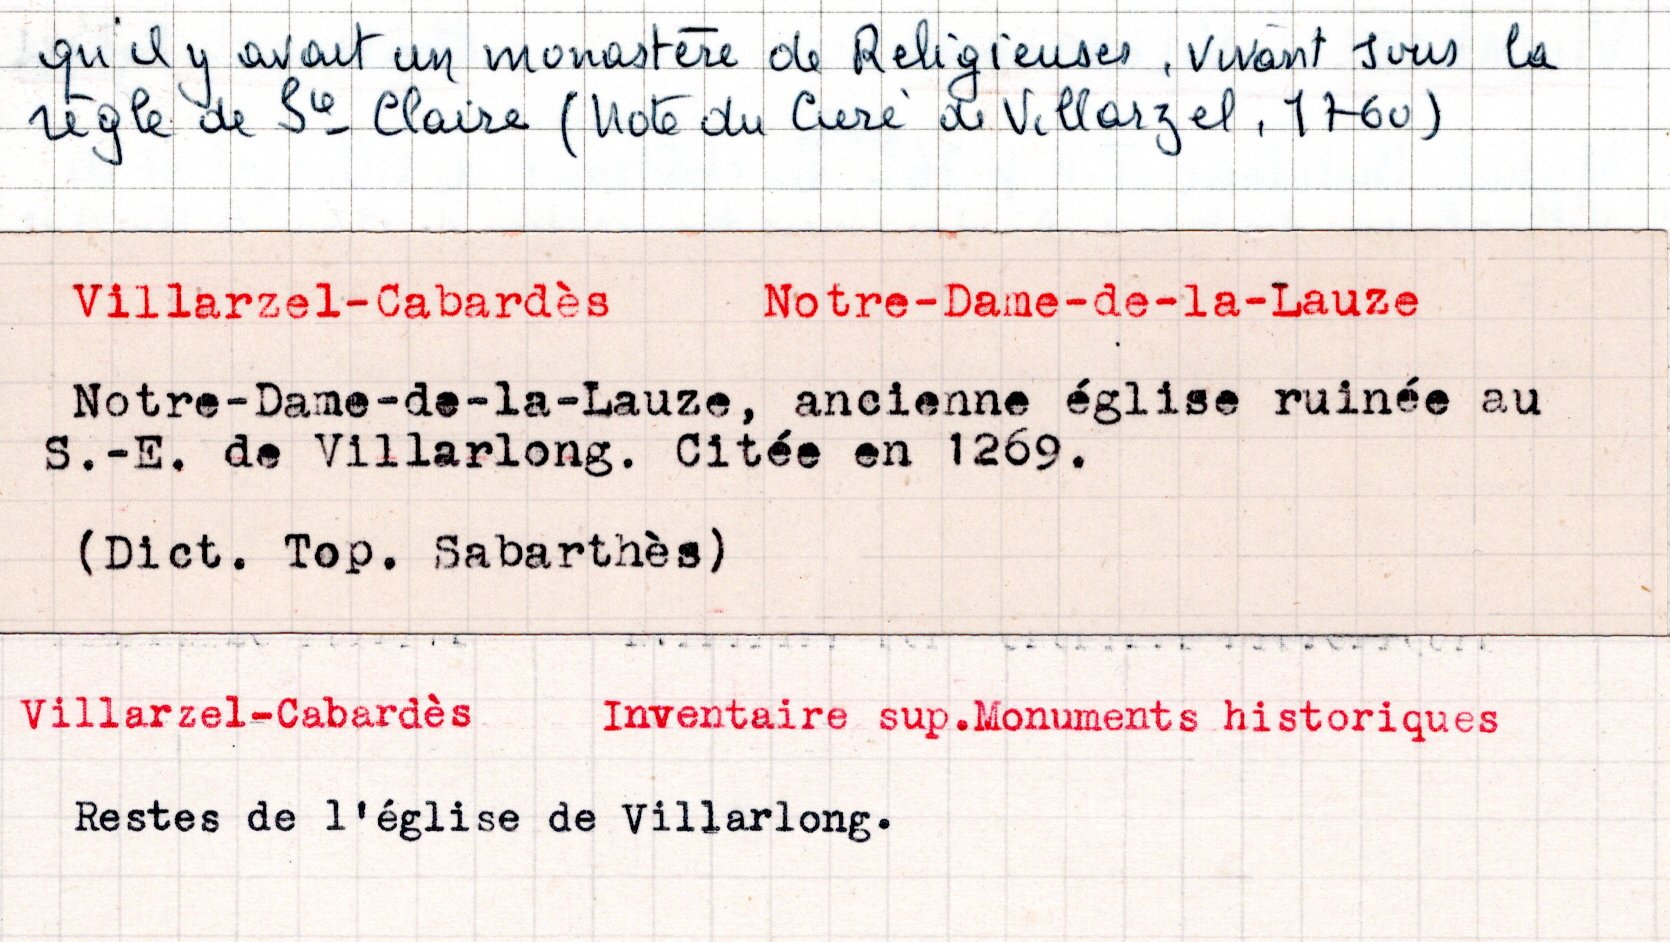 qu'il y avait un monastère de Religieuses, vivant sous la
règle de Ste Claire (Note du Curé de Villarzel, 1760)
Villarzel-Cabardès Notre-Dame-de-la-Lauze
Notre-Dame-de-la-Lauze, ancienne église ruinée au
S.-E. de Villarlong. Citée en 1269.
(Dict. Top. Sabarthès)
Villarzel-Cabardès Inventaire sup.Monuments historiques
Restes de l'église de Villarlong.